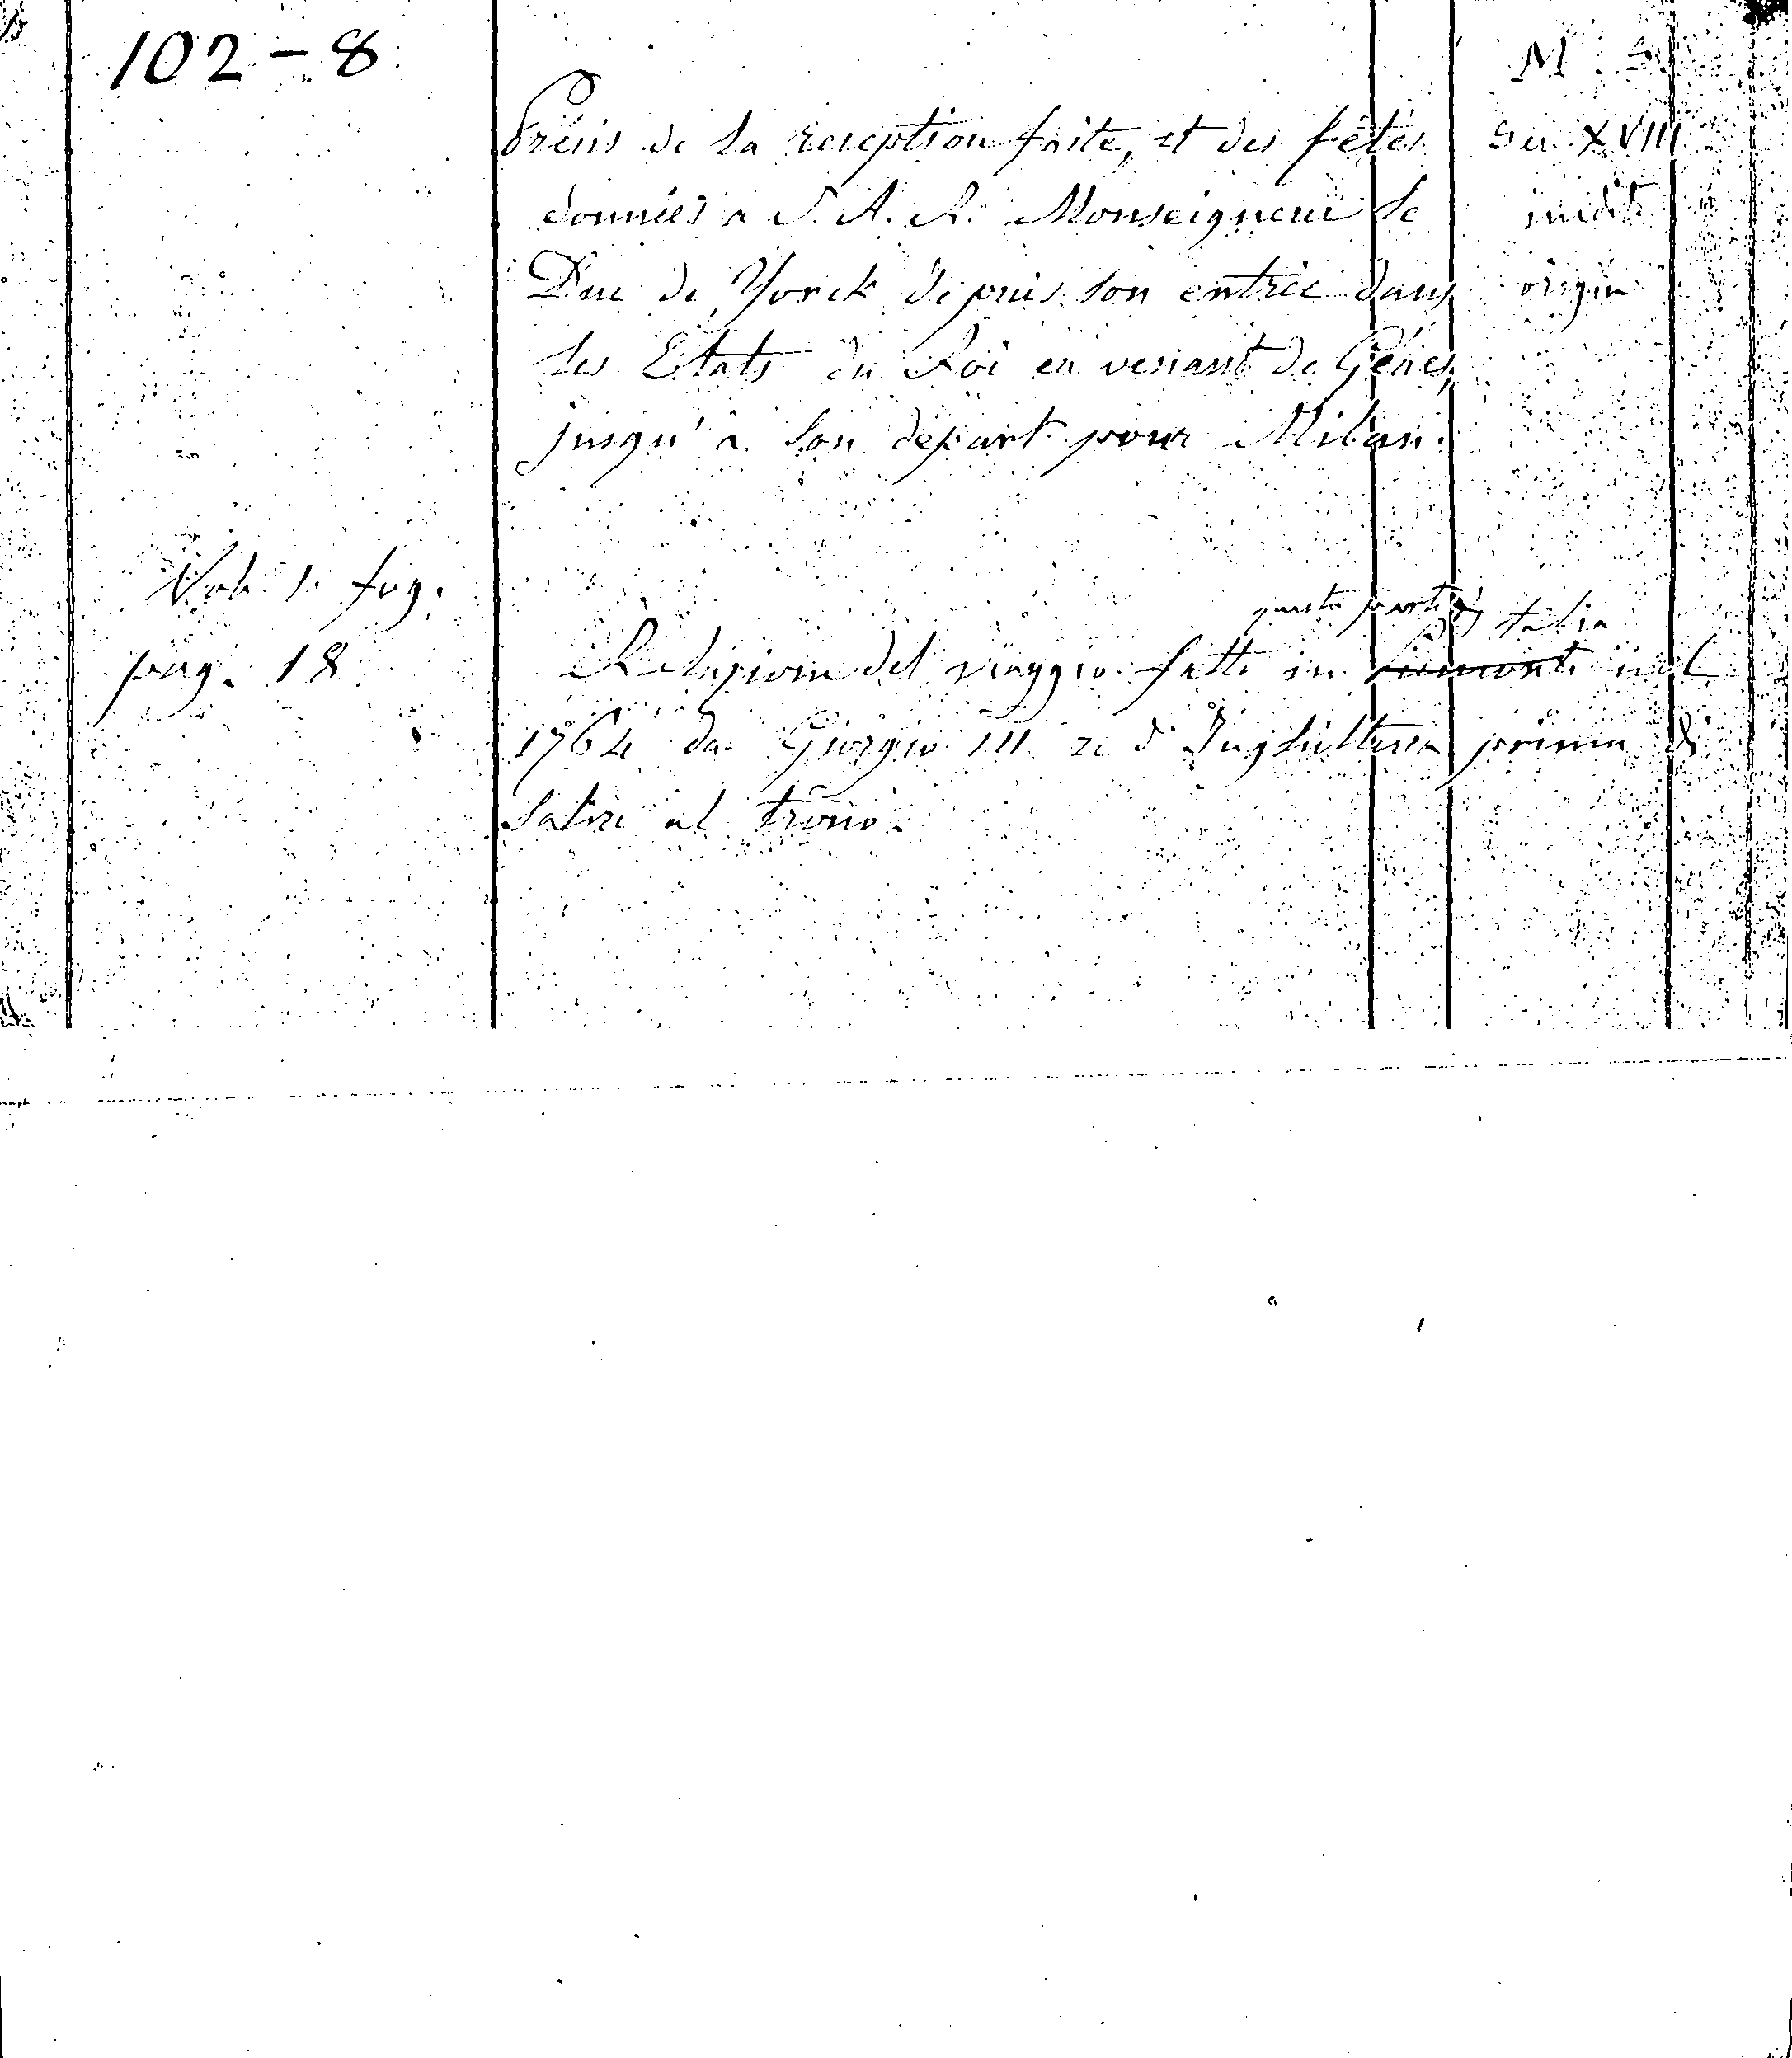 102 - 8
M. S.
Précis de la reception faite, et des fêtes
Sec XVIII
données a S. A. R. Monseigneur le
inedit
Duc de Yorck depuis son entrée dans
origin
les Etats du Roi en venant de Gênes,
jusqu'à son départ pour Milan.
Vol. 1. fog.
pag. 18
questa parte d'Italia
Relazione del viaggio fatto in Piemonte nel
1764 da Giorgio III re d'Inghilterra prima di
salire al trono.